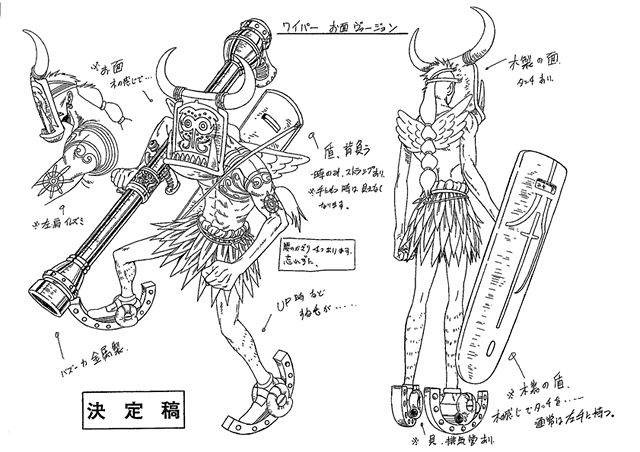 ワイパー お面ヴァージョン
※お面
木の感じで…
木製の面.
タッチあり.
※左肩イズミ
盾.背負う
時のみ.ストラップあり.
※手にもつ時は見えなく
なります.
忘れずに.
UP時など
すね毛が……
バズーカ金属製.
決定稿
※木製の盾.
木の感じでタッチを……
通常は左手に持つ。
※貝.排気管あり.